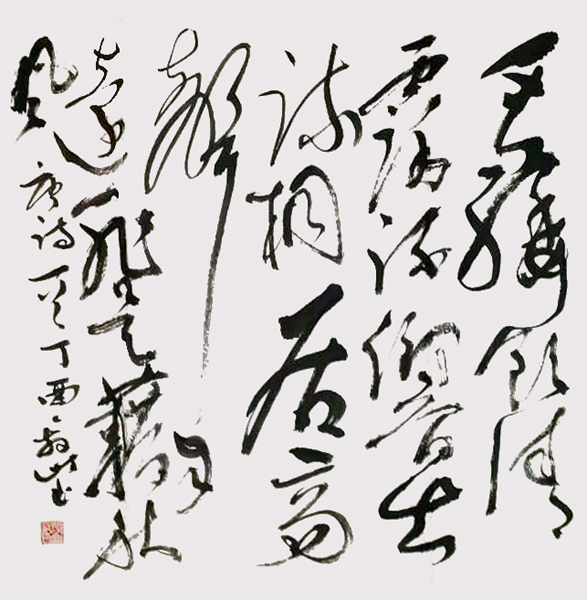 垂緌飲清
露流響出
疏桐居高
聲自
遠非是藉秋
風 唐诗一首丁酉书